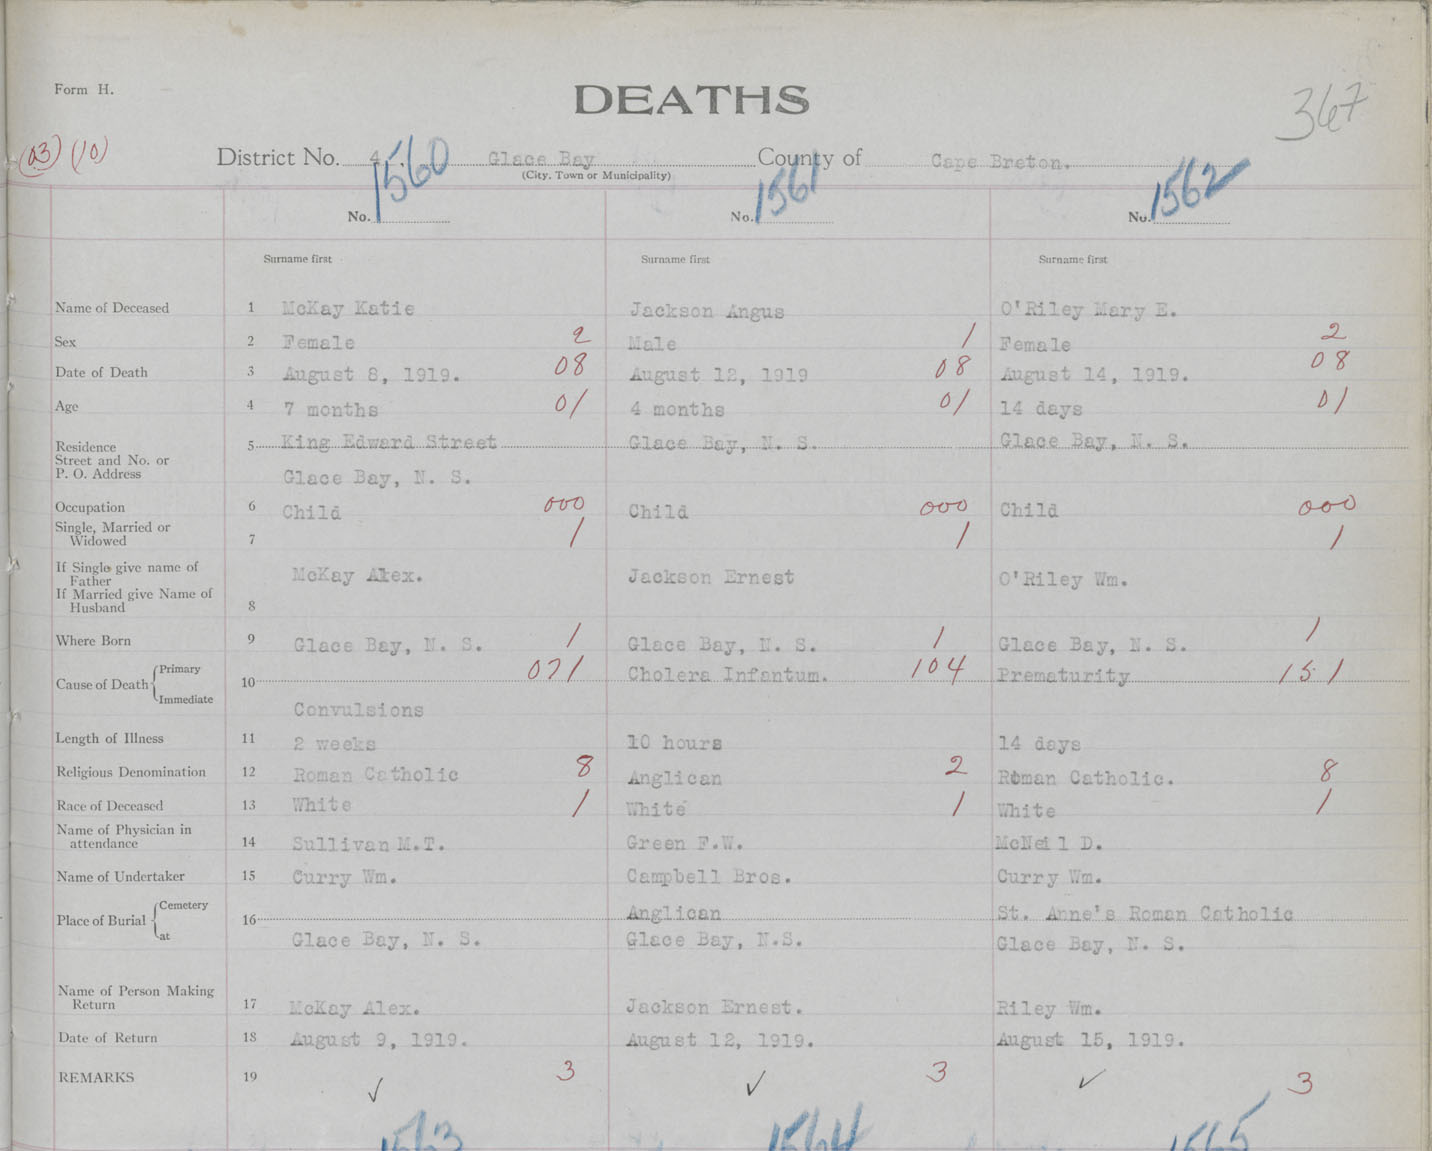 Form H.
DEATHS
367
(03) (10)
District No. 4. Glace Bay County of Cape Breton.
(City, Town or Municipality)
No. 1560 No. 1561 No. 1562
Surname first Surname first Surname first
Name of Deceased 1 McKay Katie Jackson Angus O'Riley Mary E.
Sex 2 Female 2 Male 1 Female 2
Date of Death 3 August 8, 1919. 08 August 12, 1919 08 August 14, 1919. 08
Age 4 7 months 01 4 months 01 14 days 01
Residence 5 King Edward Street Glace Bay, N. S. Glace Bay, N. S.
Street and No. or
P. O. Address Glace Bay, N. S.
Occupation 6 Child 000 Child 000 Child 000
Single, Married or
Widowed 7 1 1 1
If Single give name of
Father McKay Alex. Jackson Ernest O'Riley Wm.
If Married give Name of
Husband 8
Where Born 9 Glace Bay, N. S. 1 Glace Bay, N. S. 1 Glace Bay, N. S. 1
Cause of Death Primary 10 071 Cholera Infantum. 104 Prematurity 151
Immediate Convulsions
Length of Illness 11 2 weeks 10 hours 14 days
Religious Denomination 12 Roman Catholic 8 Anglican 2 Roman Catholic. 8
Race of Deceased 13 White 1 White 1 White 1
Name of Physician in
attendance 14 Sullivan M.T. Green F.W. McNeil D.
Name of Undertaker 15 Curry Wm. Campbell Bros. Curry Wm.
Place of Burial Cemetery 16 Anglican St. Anne's Roman Catholic
at Glace Bay, N. S. Glace Bay, N.S. Glace Bay, N. S.
Name of Person Making
Return 17 McKay Alex. Jackson Ernest. Riley Wm.
Date of Return 18 August 9, 1919. August 12, 1919. August 15, 1919.
REMARKS 19 ✓ 3 ✓ 3 ✓ 3
1563 1564 1565